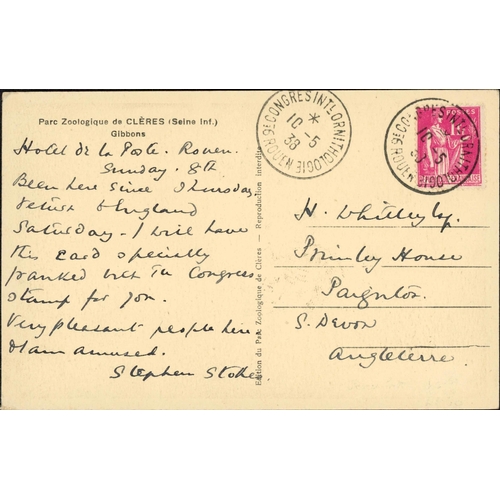 Parc Zoologique de CLÈRES (Seine Inf.)
Gibbons
Hotel de la Poste. Rouen.
Sunday. 8th
Been here since Thursday
return England
Saturday - I will have
this card specially
franked with the Congress
stamp for you.
Very pleasant people here
& I am amused.
Stephen Stokes
Edition du Parc Zoologique de Clères — Reproduction Interdite
9E CONGRES INTL ORNITHOLOGIE ROUEN
*
10 - 5
38
9E CONGRES INTL ORNITHOLOGIE ROUEN
10 - 5
38
POSTES
H. Whitley Esq
Primley House
Paignton
S. Devon
Angleterre.